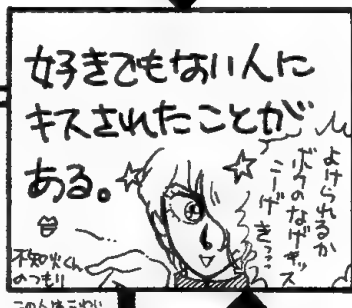 好きでもない人に
キスされたことが
ある。
よけられるか
ボクのなげキッス
こーげき??
不知火くん
のつもり
この人はこわい